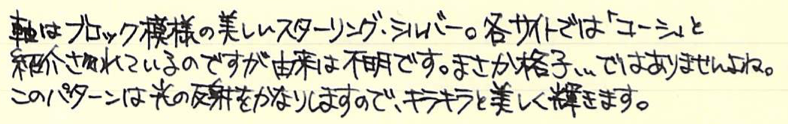 軸はブロック模様の美しいスターリング・シルバー。各サイトでは「コーシ」と
紹介されているのですが由来は不明です。まさか格子…ではありませんよね。
このパターンは光の反射をかなりしますので、キラキラと美しく輝きます。